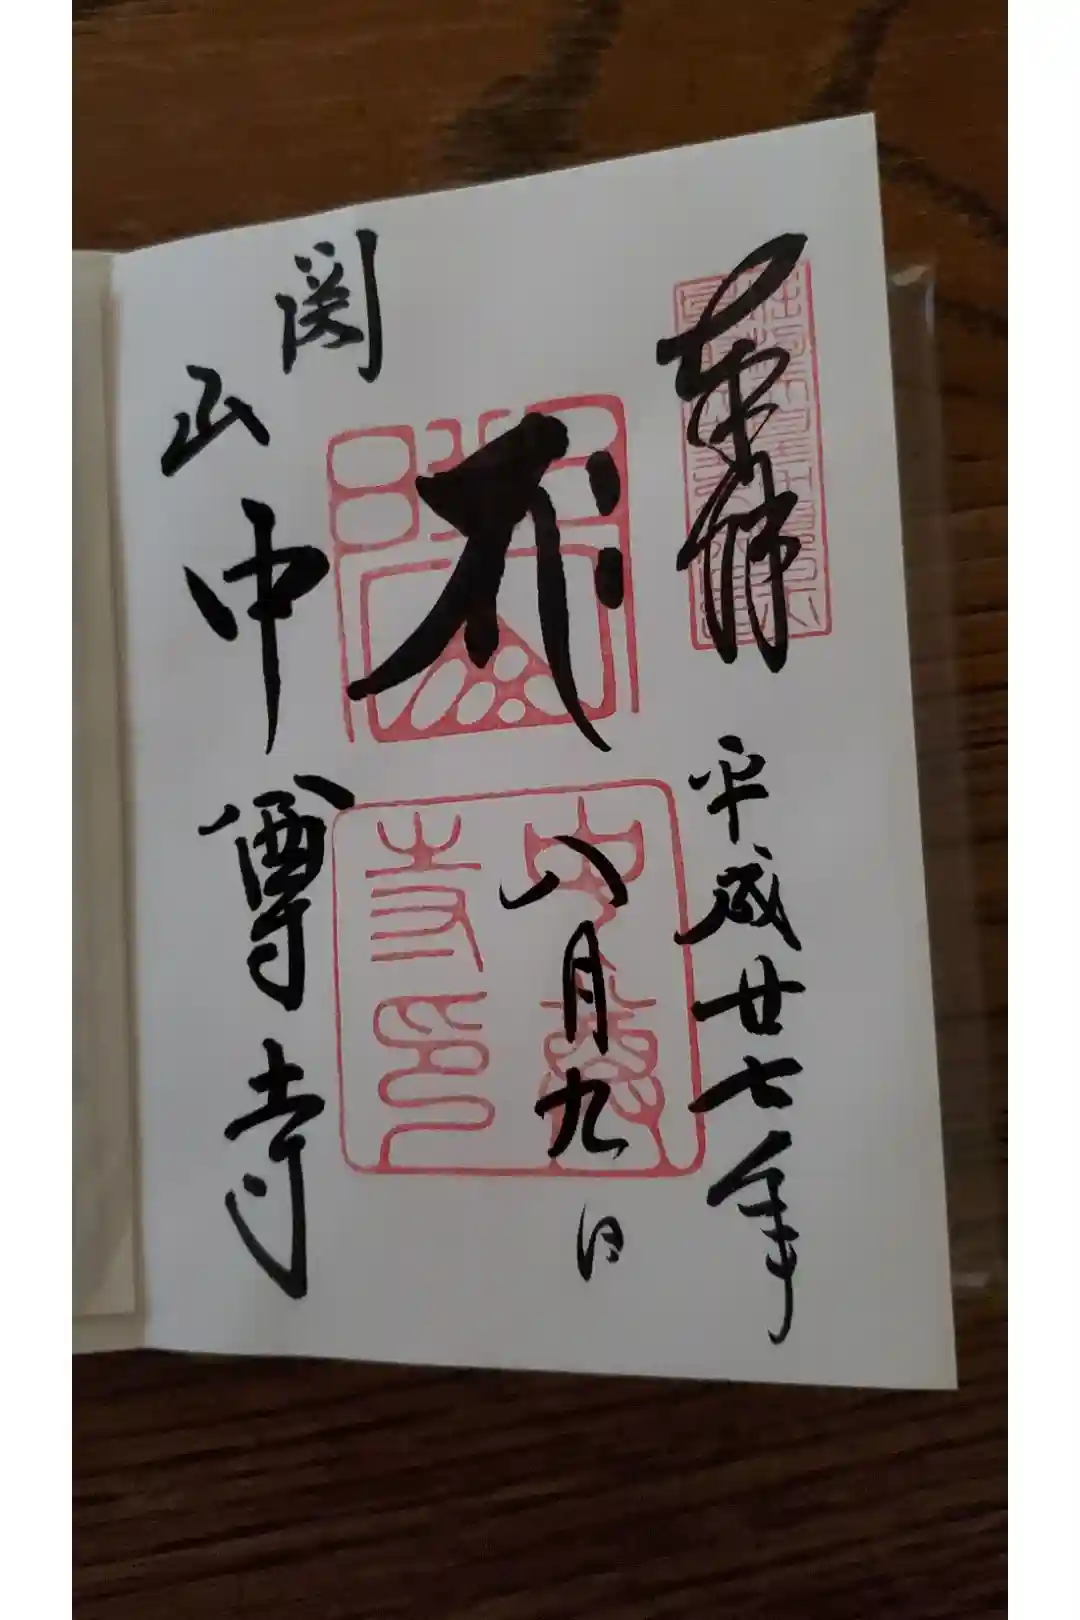 奉拝
平成廿七年
八月九日
関山
中尊寺
中尊寺印